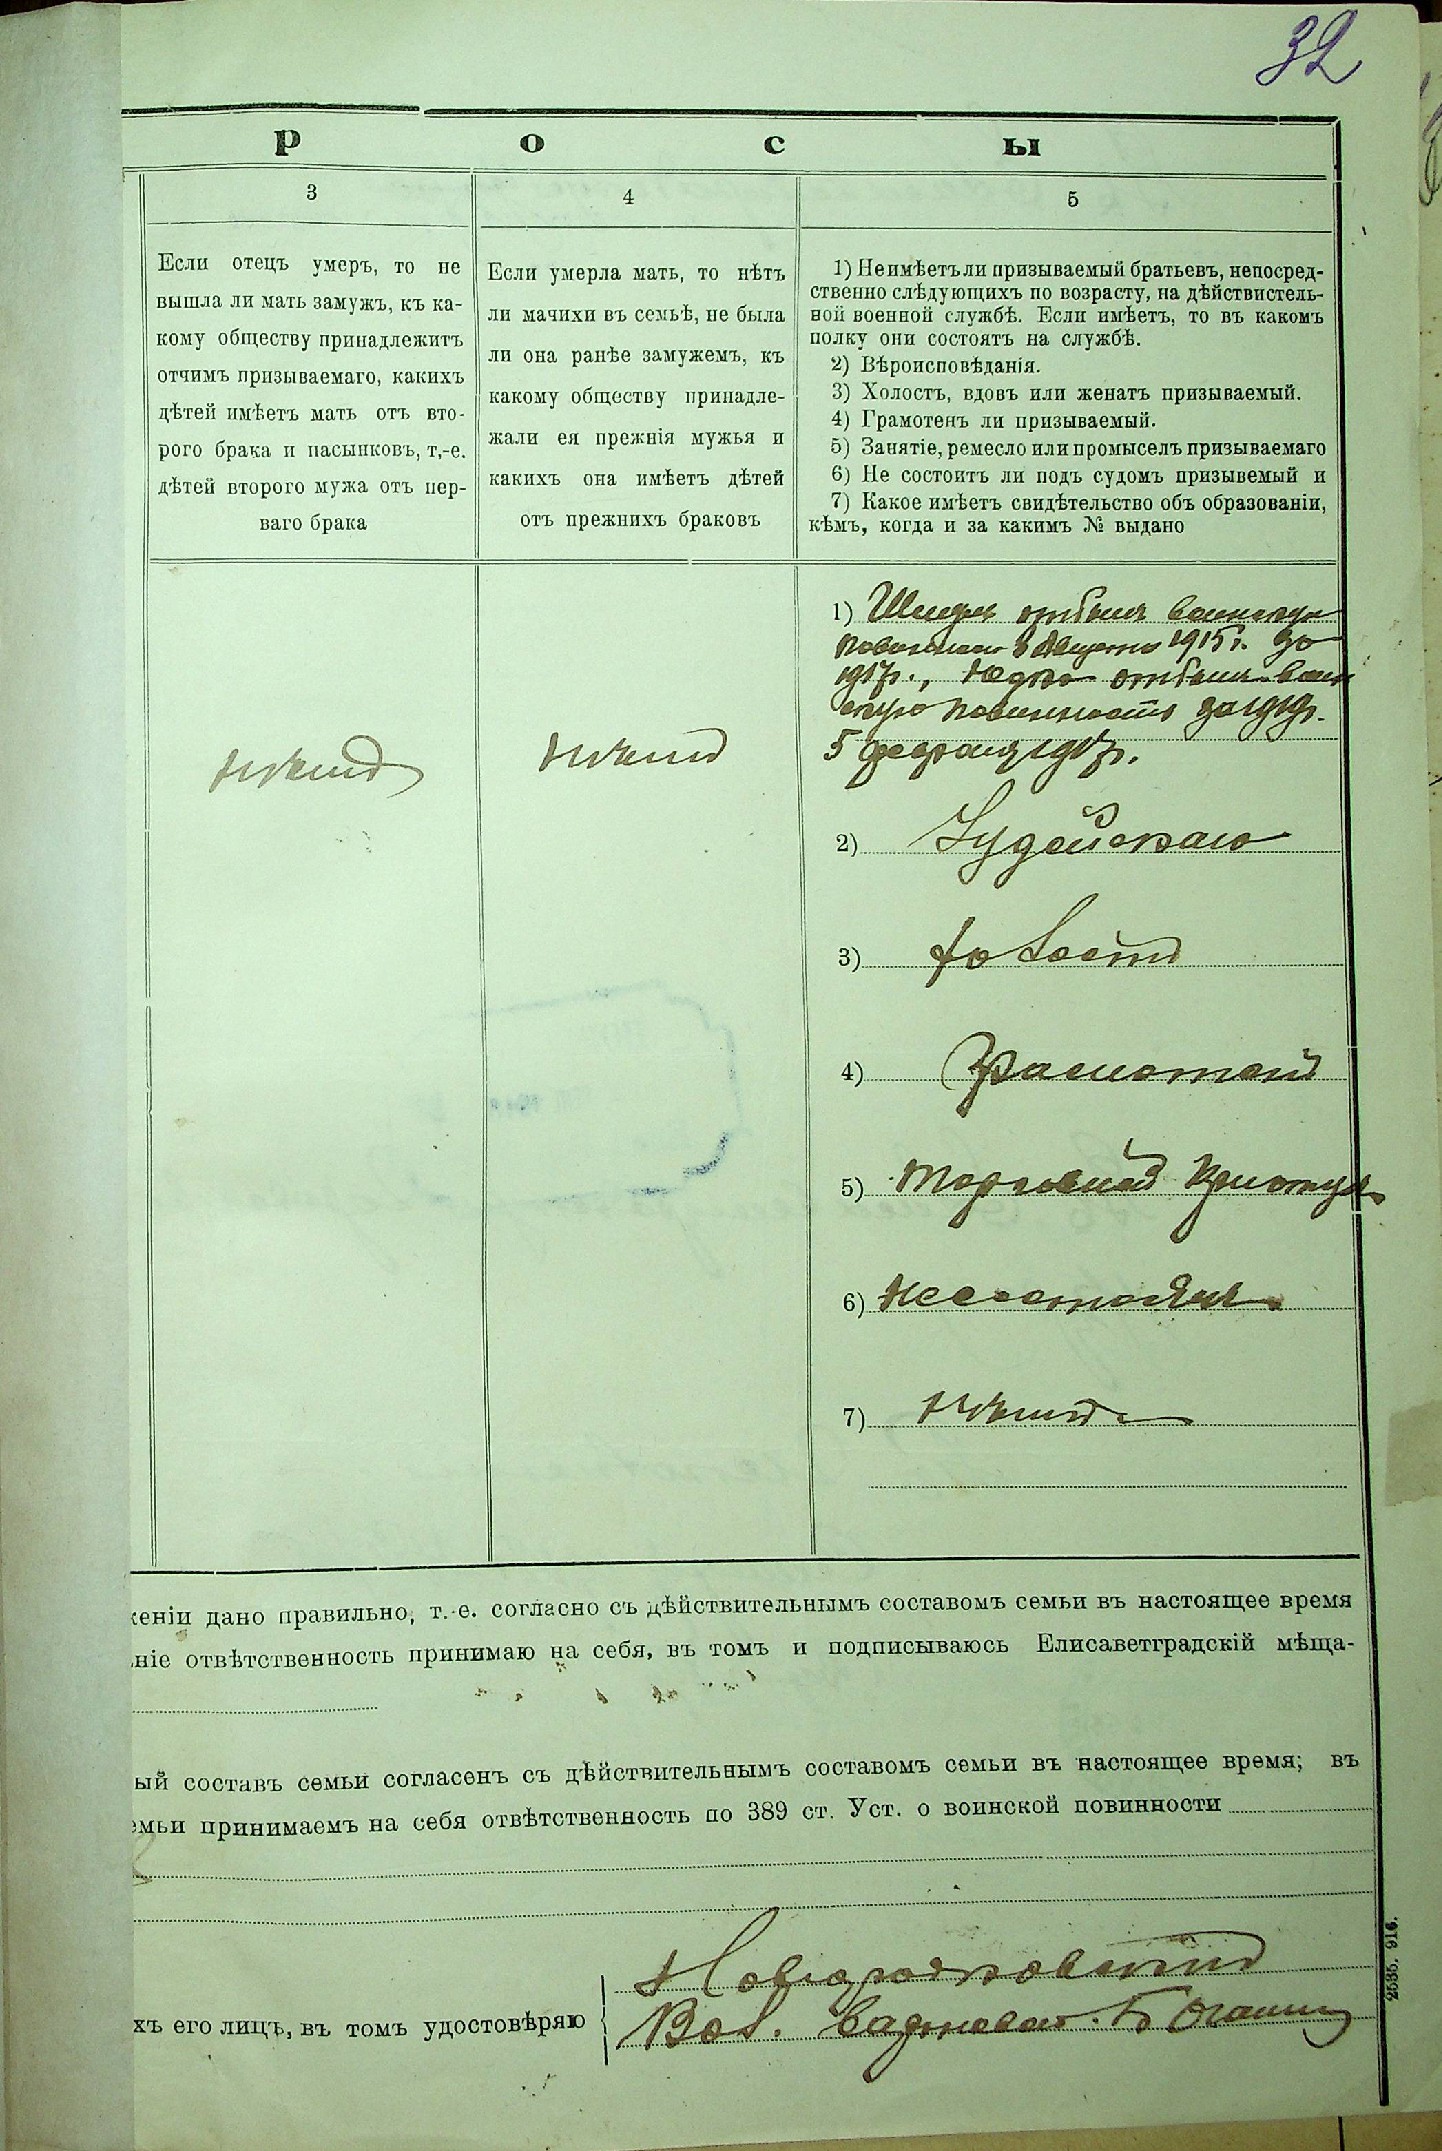 32
р о с ы
3
Если отецъ умеръ, то не
вышла ли мать замужъ, къ ка-
кому обществу принадлежитъ
отчимъ призываемаго, какихъ
дѣтей имѣетъ мать отъ вто-
рого брака и пасынковъ, т,-е.
дѣтей второго мужа отъ пер-
ваго брака
4
Если умерла мать, то нѣтъ
ли мачихи въ семьѣ, не была
ли она ранѣе замужемъ, къ
какому обществу принадле-
жали ея прежнія мужья и
какихъ она имѣетъ дѣтей
отъ прежнихъ браковъ
5
1) Неимѣетъли призываемый братьевъ, непосред-
ственно слѣдующихъ по возрасту, на дѣйствистель-
ной военной службѣ. Если имѣетъ, то въ какомъ
полку они состоятъ на службѣ.
2) Вѣроисповѣданія.
3) Холостъ, вдовъ или женатъ призываемый.
4) Грамотенъ ли призываемый.
5) Занятіе, ремесло или промыселъ призываемаго
6) Не состоитъ ли подъ судомъ призывемый и
7) Какое имѣетъ свидѣтельство объ образованіи,
кѣмъ, когда и за какимъ № выдано
нѣтъ
нѣтъ
1) отбылъ воинскую
повинность 8 Августа 1915г. за
1917г., отбылъ воин
скую повинность за 1919г.
5 февраля 1917г.
2) Іудейскаго
3) Холостъ
4) Грамотный
5) Торговый
6) Несостоялъ
7) нѣтъ
женіи дано правильно, т.-е. согласно съ дѣйствительнымъ составомъ семьи въ настоящее время
ніе отвѣтственность принимаю на себя, въ томъ и подписываюсь Елисаветградскій мѣща-
ый составъ семьи согласенъ съ дѣйствительнымъ составомъ семьи въ настоящее время; въ
емьи принимаемъ на себя отвѣтственность по 389 ст. Уст. о воинской повинности
хъ его лицъ, въ томъ удостовѣряю
2535. 916.